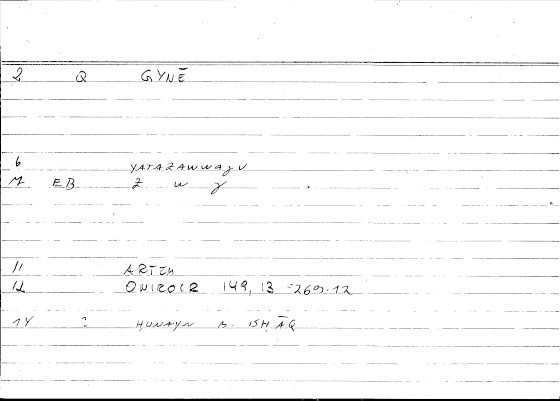 2 Q GYNĒ
6 YATAZAWWAǧU
M EB Z W ǧ
11 ARTEM
12 ONIROCR 149, 13 = 269.12
14 ? HUNAYN B. ISHĀQ